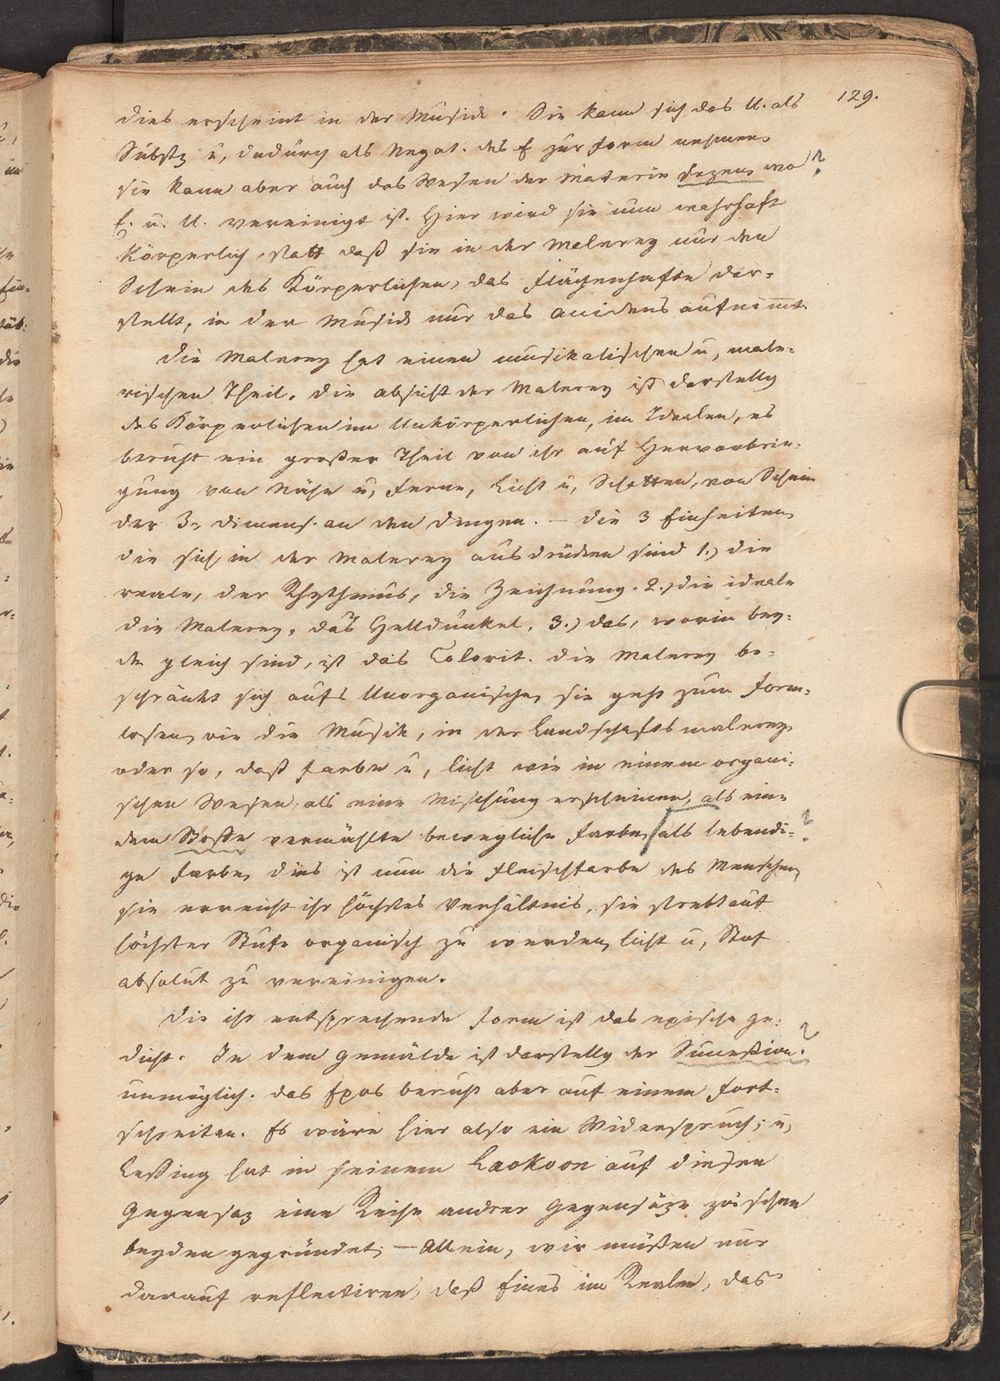 129.
dies erscheint in der Musick. Sie kann sich das U. als
Substz u, dadurch als Negat. des E zur Form nehmen
sie kann aber auch das Wesen der Materie sezen wo ?
E. u. U. vereinigt ist. Hier wird sie nun wahrhaft
körperlich, statt daß sie in der Malerey nur den
Schein des Körperlichen, das Flächenhafte dar-
stellt, in der Musick nur das Accidens aufnim̅t.
Die Malerey hat einen musikalischen u, male-
rischen Theil. Die Absicht der Malerey ist Darstellg
des Körperlichen im Unkörperlichen, im Idealen, es
beruht ein großer Theil von ihr auf Hervorbrin-
gung von Nähe u, Ferne, Licht u, Schatten, von Schein
der 3n Dimens. an den Dingen. — Die 3 Einheiten
die sich in der Malerey ausdrücken sind 1.) die
reale, der Rhythmus, die Zeichnung. 2.) die ideale
die Malerey, das Helldunkel, 3.) das, worin bey-
de gleich sind, ist das Colorit. Die Malerey be-
schränkt sich aufs Unorganische, sie geht zum Form-
losen, wie die Musik, in der Landschaftsmalerey,
oder so, daß Farbe u, Licht wie in einem organi-
schen Wesen, als eine Mischung erscheinen, als ein-
dem Stoffe vermählte bewegliche Farbe, als lebendi- ?
ge Farbe, dies ist nun die Fleischfarbe des Menschen,
sie erreicht ihr höchstes Verhältnis, sie strebt auf
höchster Stufe organisch zu werden, Licht u, Stof
absolut zu vereinigen.
Die ihr entsprechende Form ist das epische Ge-
dicht. In dem Gemälde ist Darstellg der Succession ?
unmöglich. Das Epos beruht aber auf einem Fort-
schreiten. Es wäre hier also ein Widerspruch; u,
Leßing hat in seinem Laokoon auf diesen
Gegensaz eine Reihe andrer Gegensäze zwischen
beyden gegründet, — Allein, wir müßen nur
darauf reflectiren, daß Eines im Realen, das